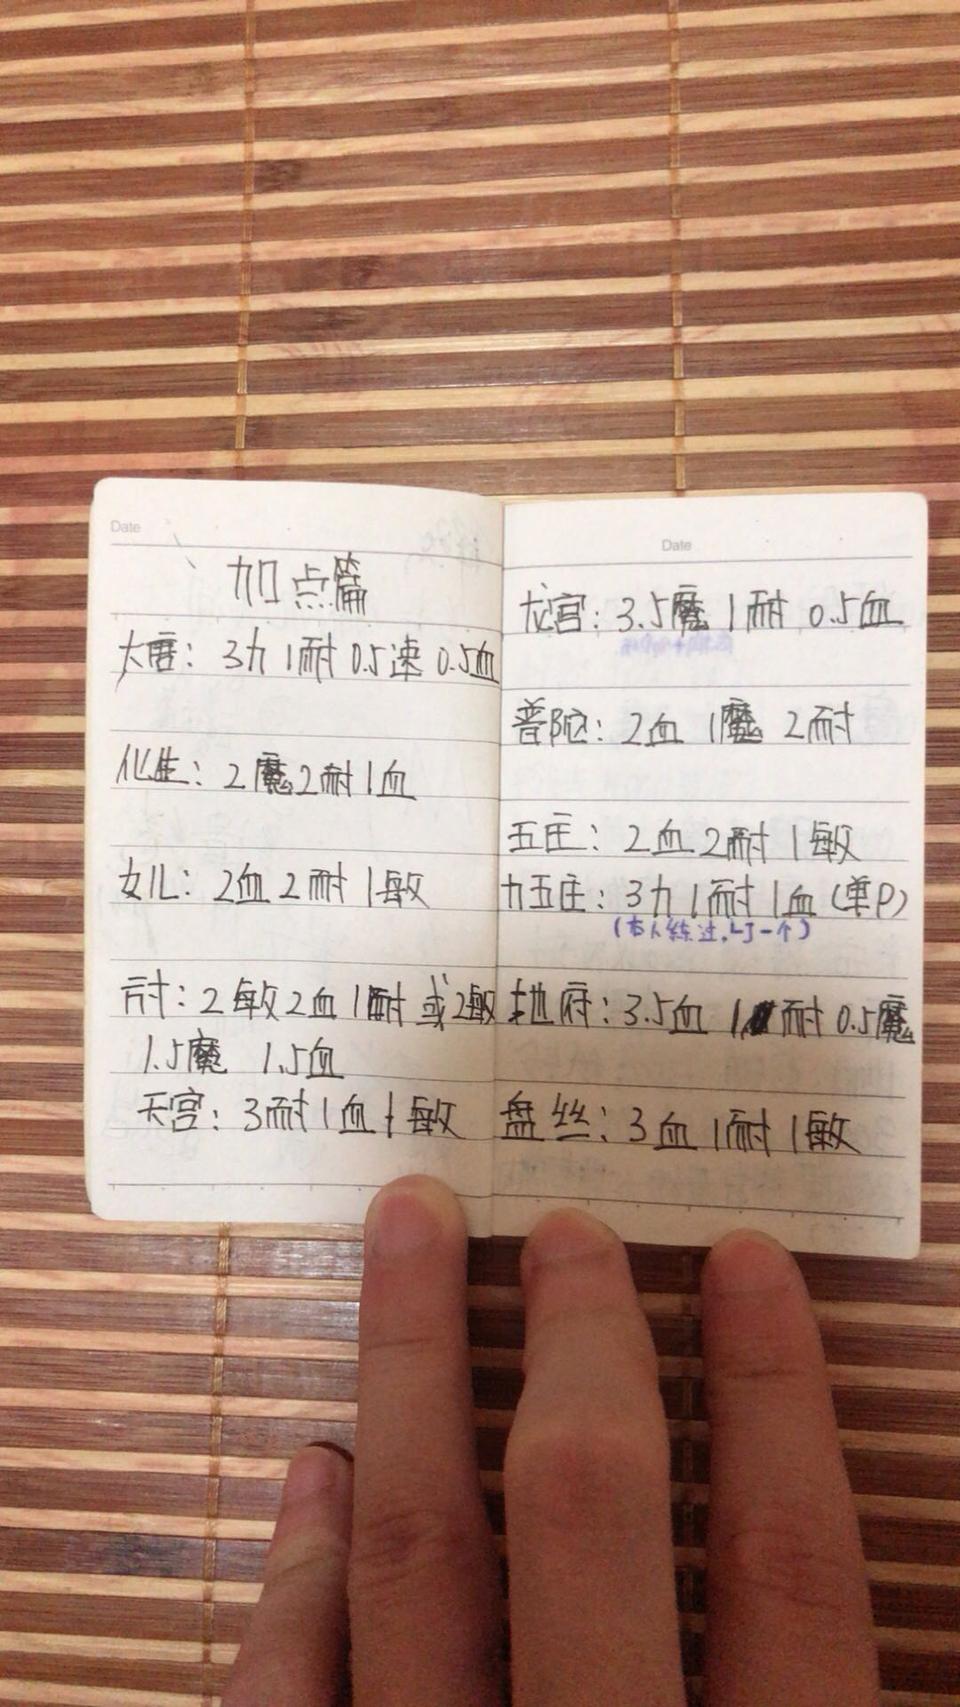 Date
加点篇
大唐：3力 1耐 0.5速 0.5血
化生：2魔2耐1血
女儿：2血2耐 1敏
方寸：2敏2血1耐 或2敏
1.5魔 1.5血
天宫：3耐1血1敏
Date
龙宫：3.5魔 1耐 0.5血
普陀：2血 1魔 2耐
五庄：2血2耐 1敏
力五庄：3力 1耐 1血（单P）
（本人练过，一个）
地府：3.5血 1耐 0.5魔
盘丝：3血 1耐 1敏